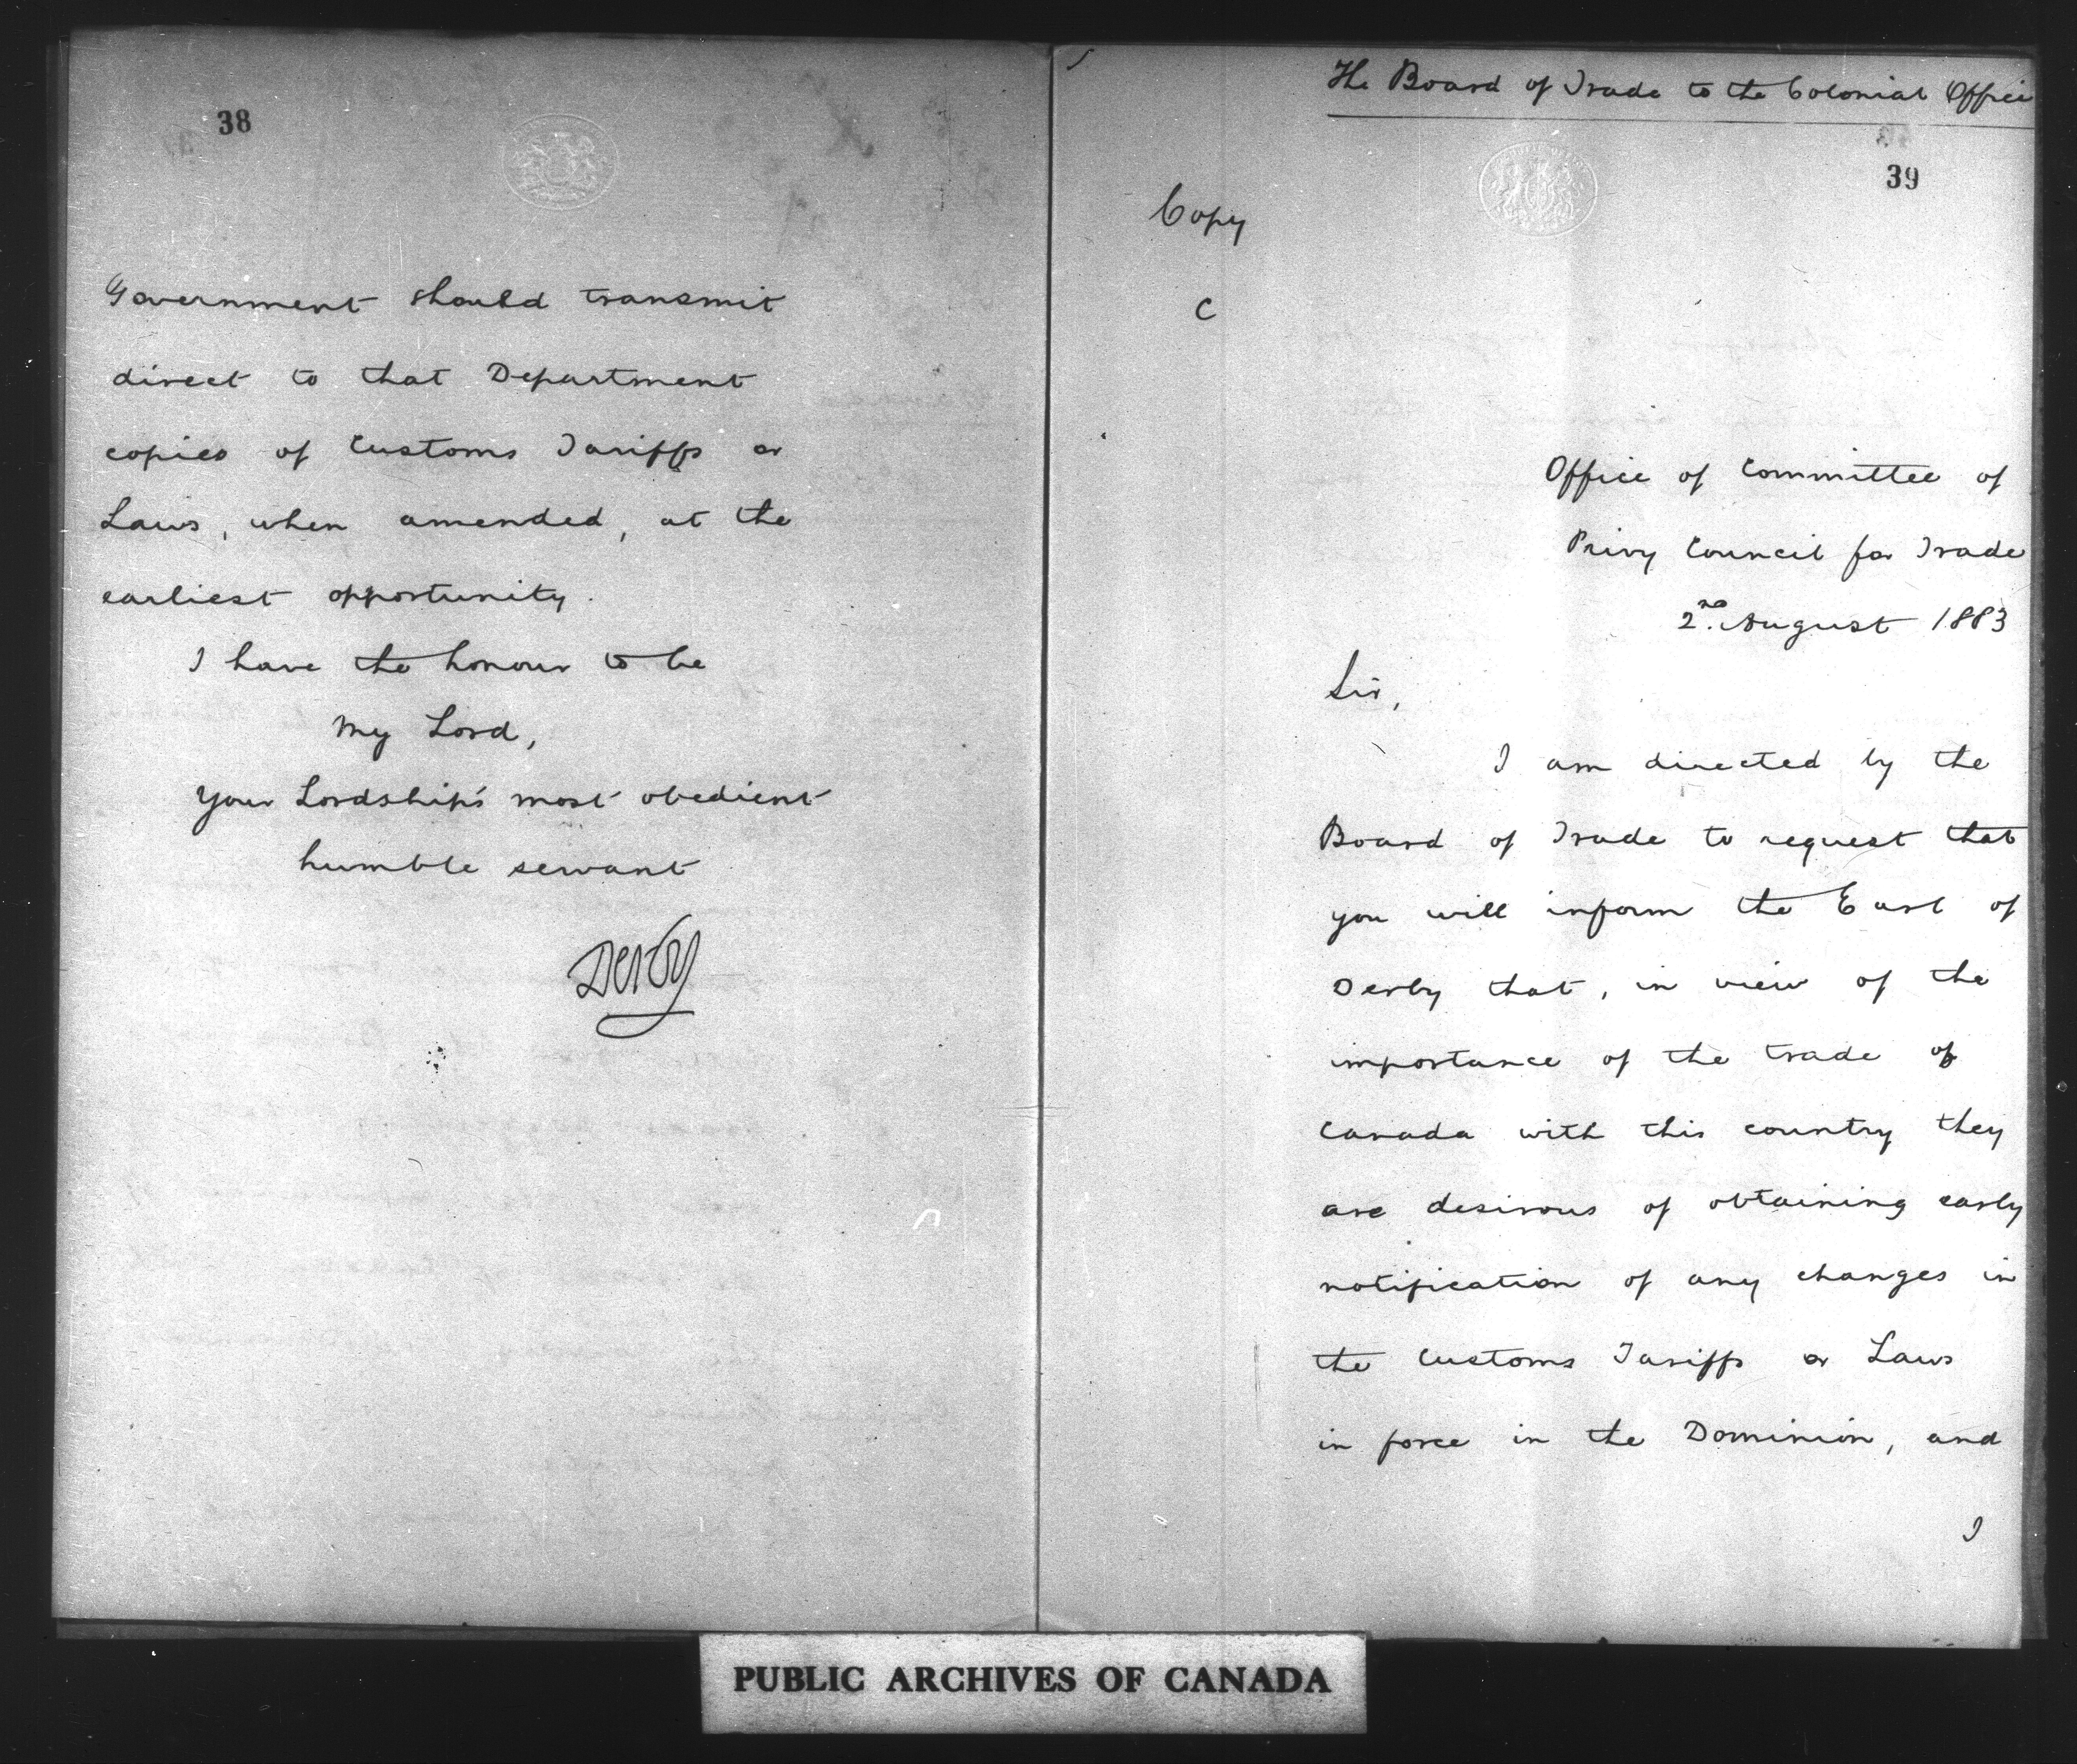 38
Government should transmit
direct to that Department
copies of Customs Tariffs or
Laws, when amended, at the
earliest opportunity.
I have the honour to be
My Lord,
Your Lordship's most obedient
humble servant
Derby
The Board of Trade to the Colonial Office
39
Copy
C
Office of Committee of
Privy Council for Trade
2nd August 1883
Sir,
I am directed by the
Board of Trade to request that
you will inform the Earl of
Derby that, in view of the
importance of the trade of
Canada with this country they
are desirous of obtaining early
notification of any changes in
the Customs Tariffs or Laws
in force in the Dominion, and
I
PUBLIC ARCHIVES OF CANADA